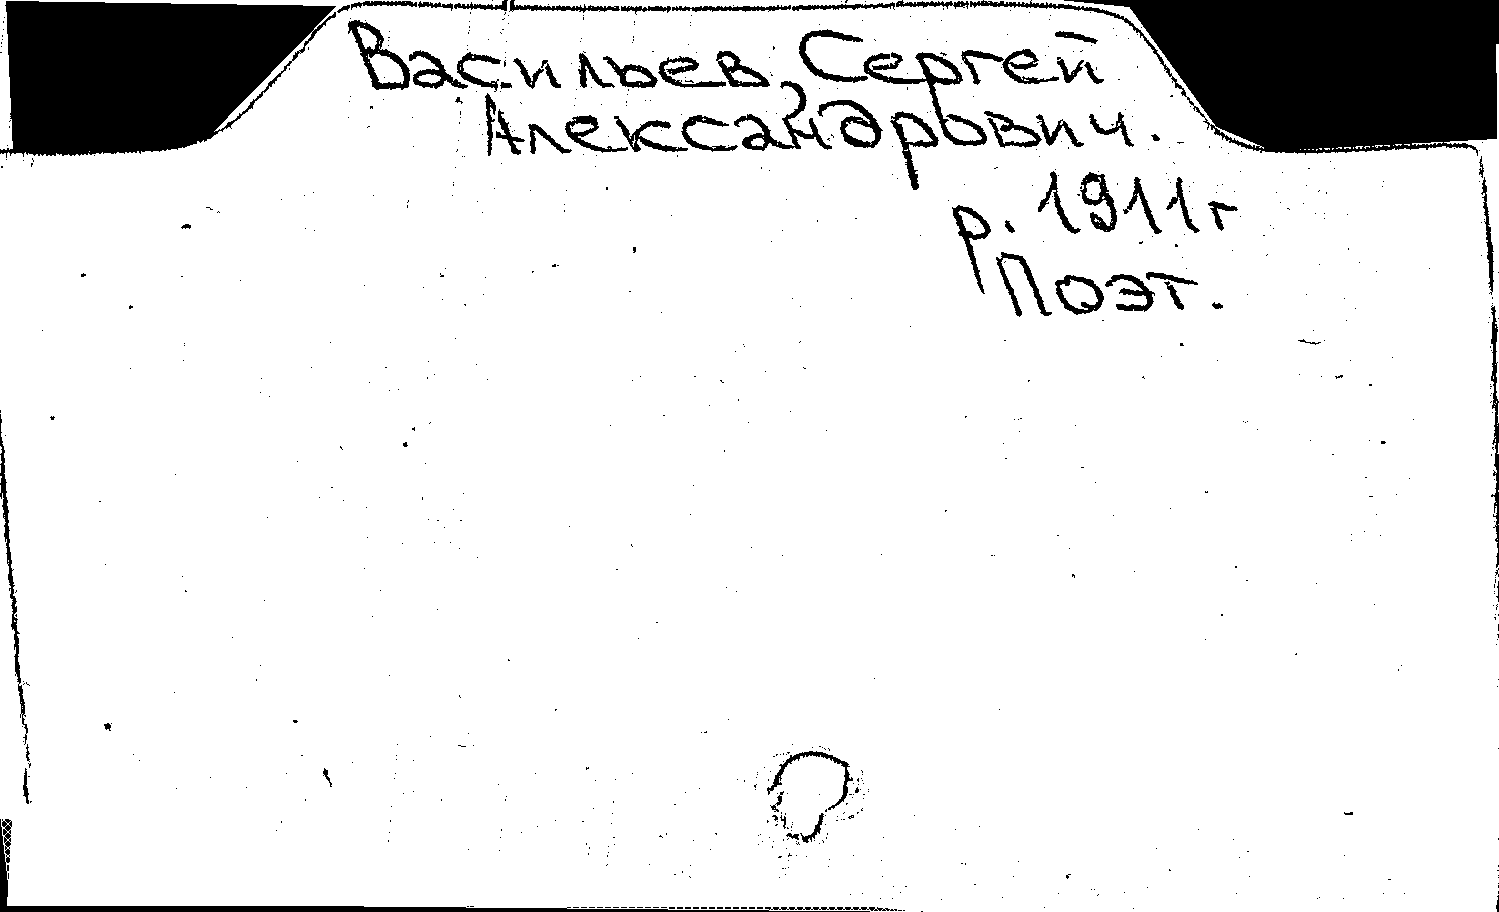 Васильев, Сергей
Александрович.
р. 1911г
Поэт.